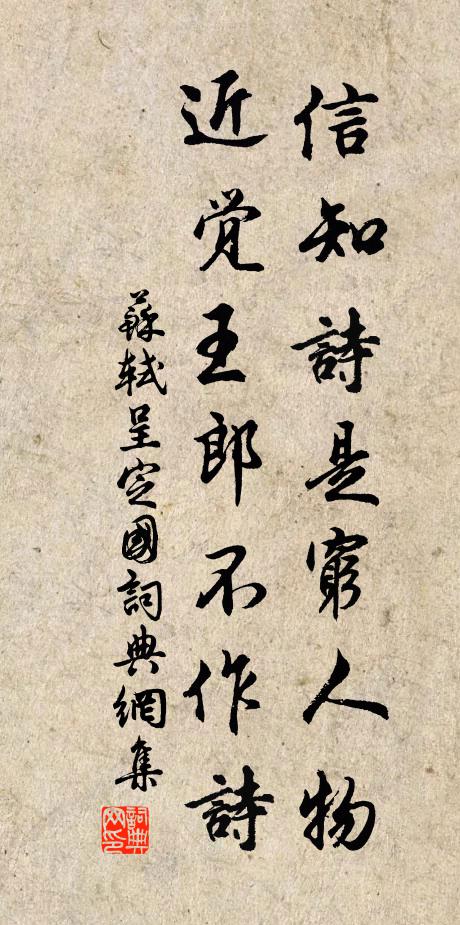 信知詩是窮人物
近覚王郎不作詩
蘇軾呈定國詞典網集
詞典網印